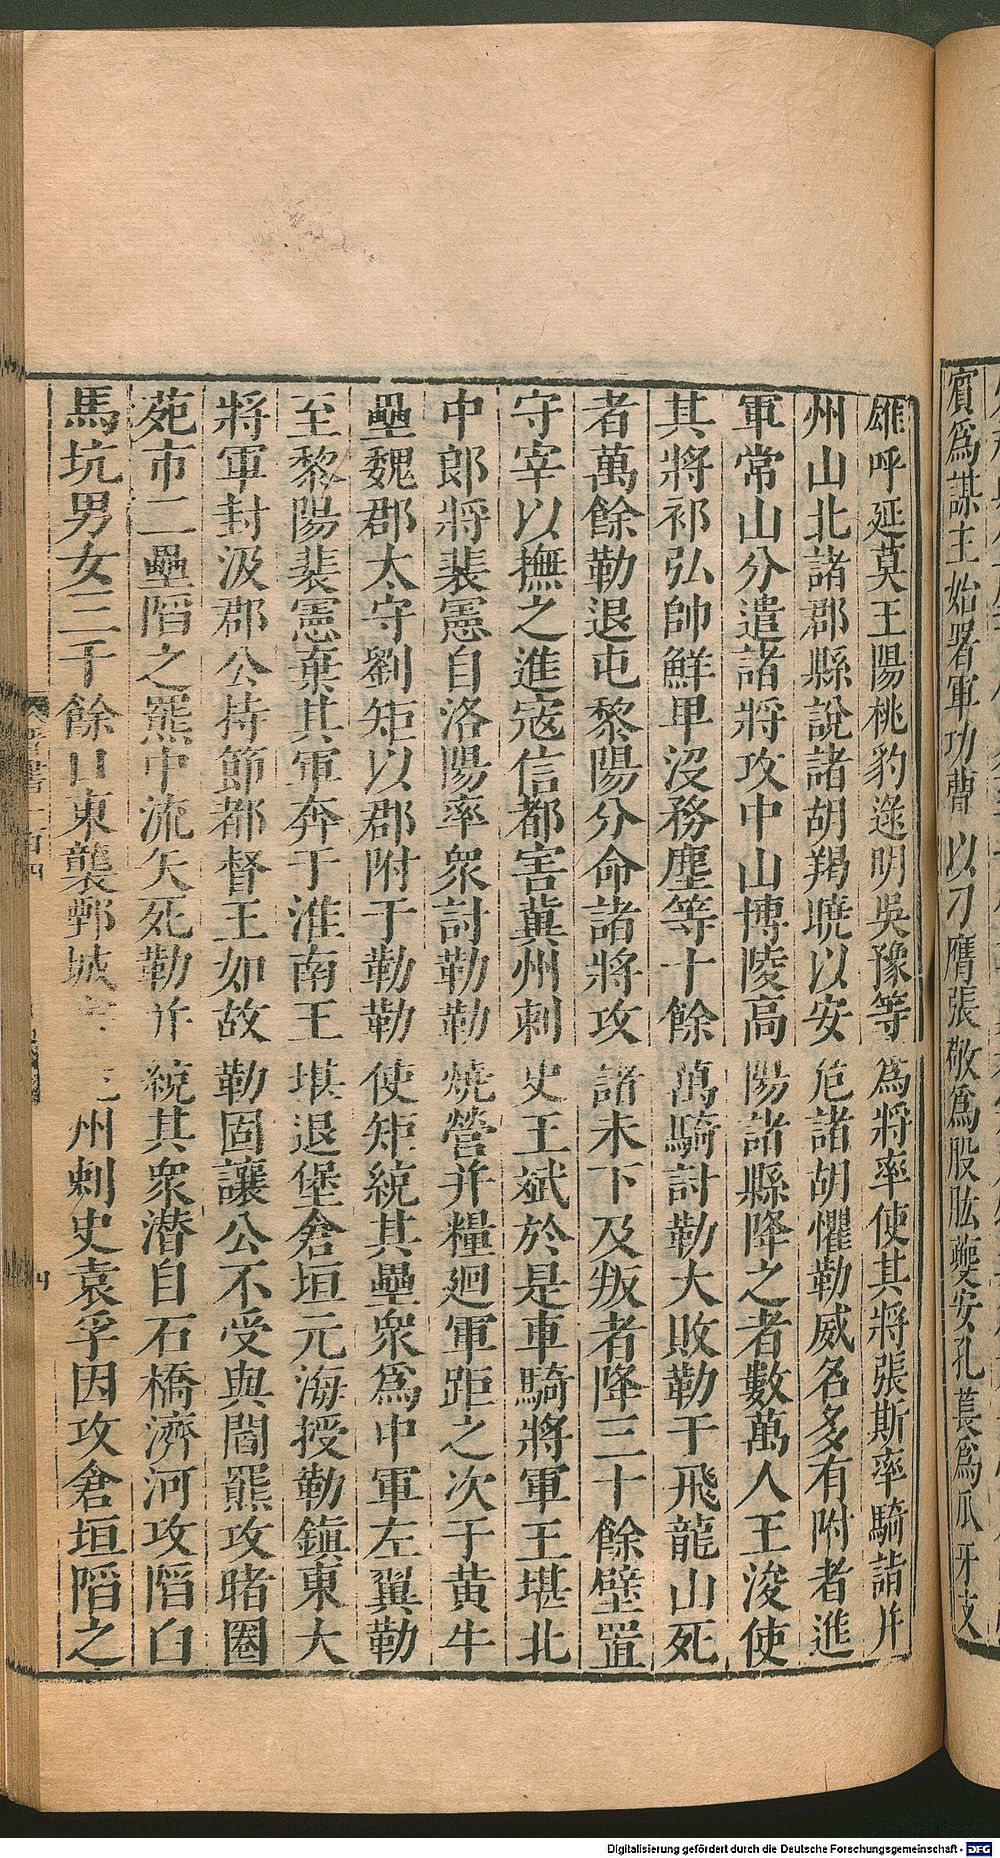 賓爲謀主始署軍功曹以刁膺張敬爲股肱夔安孔萇爲爪牙支
雄呼延莫王陽桃豹逯明吳豫等爲將率使其將張斯率騎詣并
州山北諸郡縣說諸胡羯曉以安危諸胡懼勒威名多有附者進
軍常山分遣諸將攻中山博陵高陽諸縣降之者數萬人王浚使
其將祁弘帥鮮卑沒務塵等十餘萬騎討勒大敗勒于飛龍山死
者萬餘勒退屯黎陽分命諸將攻諸未下及叛者降三十餘壁置
守宰以撫之進寇信都害冀州刺史王斌於是車騎將軍王堪北
中郎將裴憲自洛陽率衆討勒勒燒營并糧廻軍距之次于黃牛
壘魏郡太守劉矩以郡附于勒勒使矩統其壘衆爲中軍左翼勒
至黎陽裴憲棄其軍奔于淮南王堪退堡倉垣元海授勒鎭東大
將軍封汲郡公持節都督王如故勒固讓公不受與閻羆攻䐗圈
苑市二壘䧟之羆中流矢死勒并統其衆潜自石橋濟河攻䧟白
馬坑男女三千餘口東襲鄄城州刺史袁孚因攻倉垣䧟之
晉書一百四
四
Digitalisierung gefördert durch die Deutsche Forschungsgemeinschaft - DFG